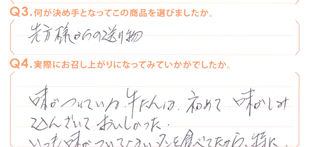 Q3.何が決め手となってこの商品を選びましたか。
先方様からの送り物
Q4.実際にお召し上がりになってみていかがでしたか。
味がついている牛たんは、初めて 味がしみ
込んでいておいしかった。
いつも味がついてないのを食べてたから、特に、